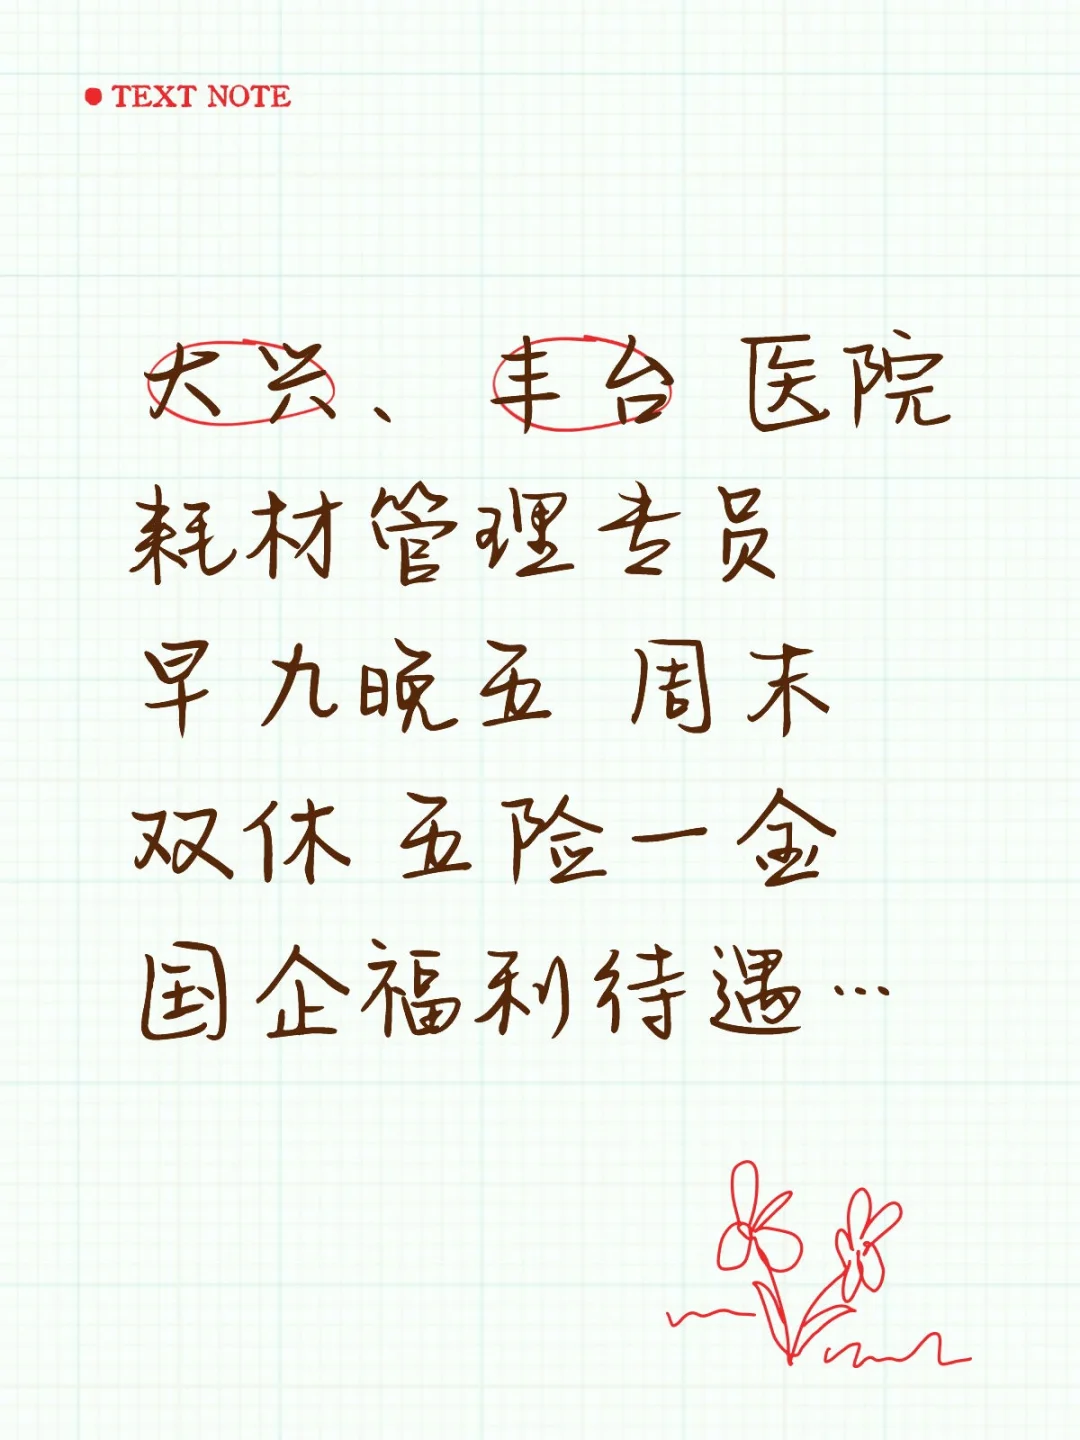 TEXT NOTE
大兴、丰台 医院
耗材管理专员
早九晚五 周末
双休 五险一金
国企福利待遇…